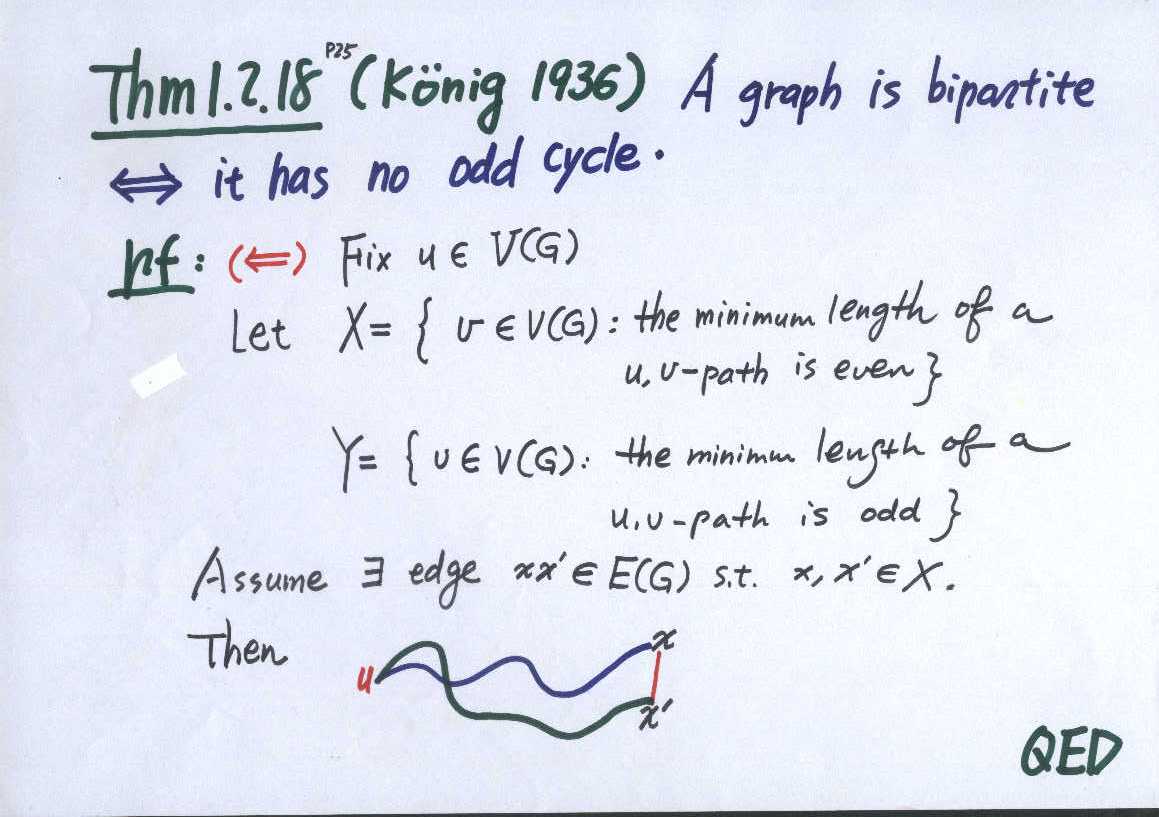 Thm 1.2.18 P25 (König 1936) A graph is bipartite
⇔ it has no odd cycle.
pf: (⇐) Fix u ∈ V(G)
Let X = { v ∈ V(G) : the minimum length of a
u, v-path is even }
Y = { v ∈ V(G) : the minimum length of a
u, v-path is odd }
Assume ∃ edge xx' ∈ E(G) s.t. x, x' ∈ X.
Then
x
u
x'
QED